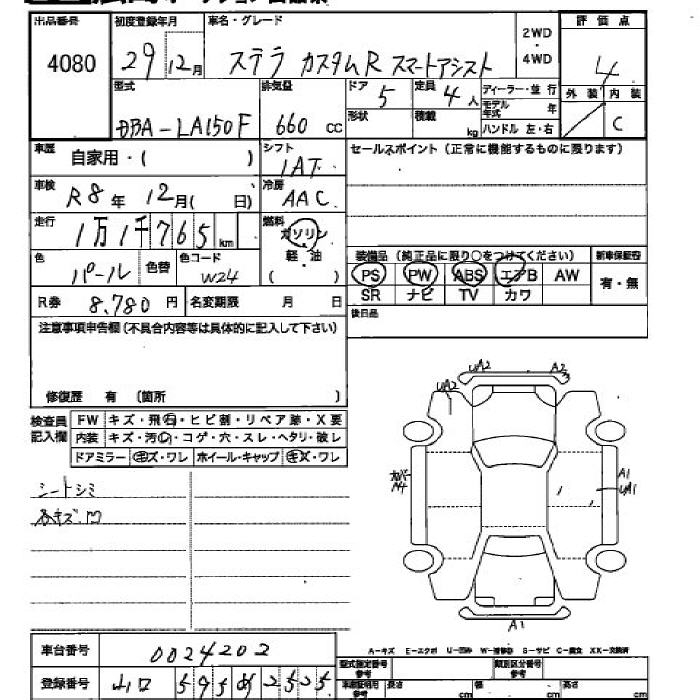 出品番号
4080
初度登録年月
29年12月
車名・グレード
ステラ カスタムR スマートアシスト
2WD
・
4WD
評価点
4
外装 内装
C
型式
DBA-LA150F
排気量
660 cc
ドア
5
形状
定員
4人
積載
kg
ディーラー・並行
モデル年式 年
ハンドル 左・右
車歴
自家用・( )
シフト
1AT
セールスポイント(正常に機能するものに限ります)
車検
R8年12月( 日)
冷房
AAC
走行
1万1千765km
燃料
ガソリン
軽・油
( )
色
パール
色替
色コード
W24
装備品(純正品に限り○をつけてください)
PS PW ABS エアB AW
SR ナビ TV カワ
新車保証書
有・無
R券 8,780円
名変期限 月 日
後日品
注意事項申告欄(不具合内容等は具体的に記入して下さい)
修復歴 有 (箇所 )
検査員記入欄
FW キズ・飛石・ヒビ割・リペア跡・X要
内装 キズ・汚・コゲ・穴・スレ・ヘタリ・破レ
ドアミラー キズ・ワレ ホイール・キャップ キズ・ワレ
シートシミ
各キズ.凹
UA2
A2
UA2
カバー
A4
A1
UA1
A1
A-キズ E-エクボ U-凹み W-補修跡 S-サビ C-腐食 XX-交換済
車台番号
0024202
登録番号
山口 595 2525
型式指定番号
参考
類別区分番号
参考
車庫証明用
参考
長さ cm
幅 cm
高さ cm